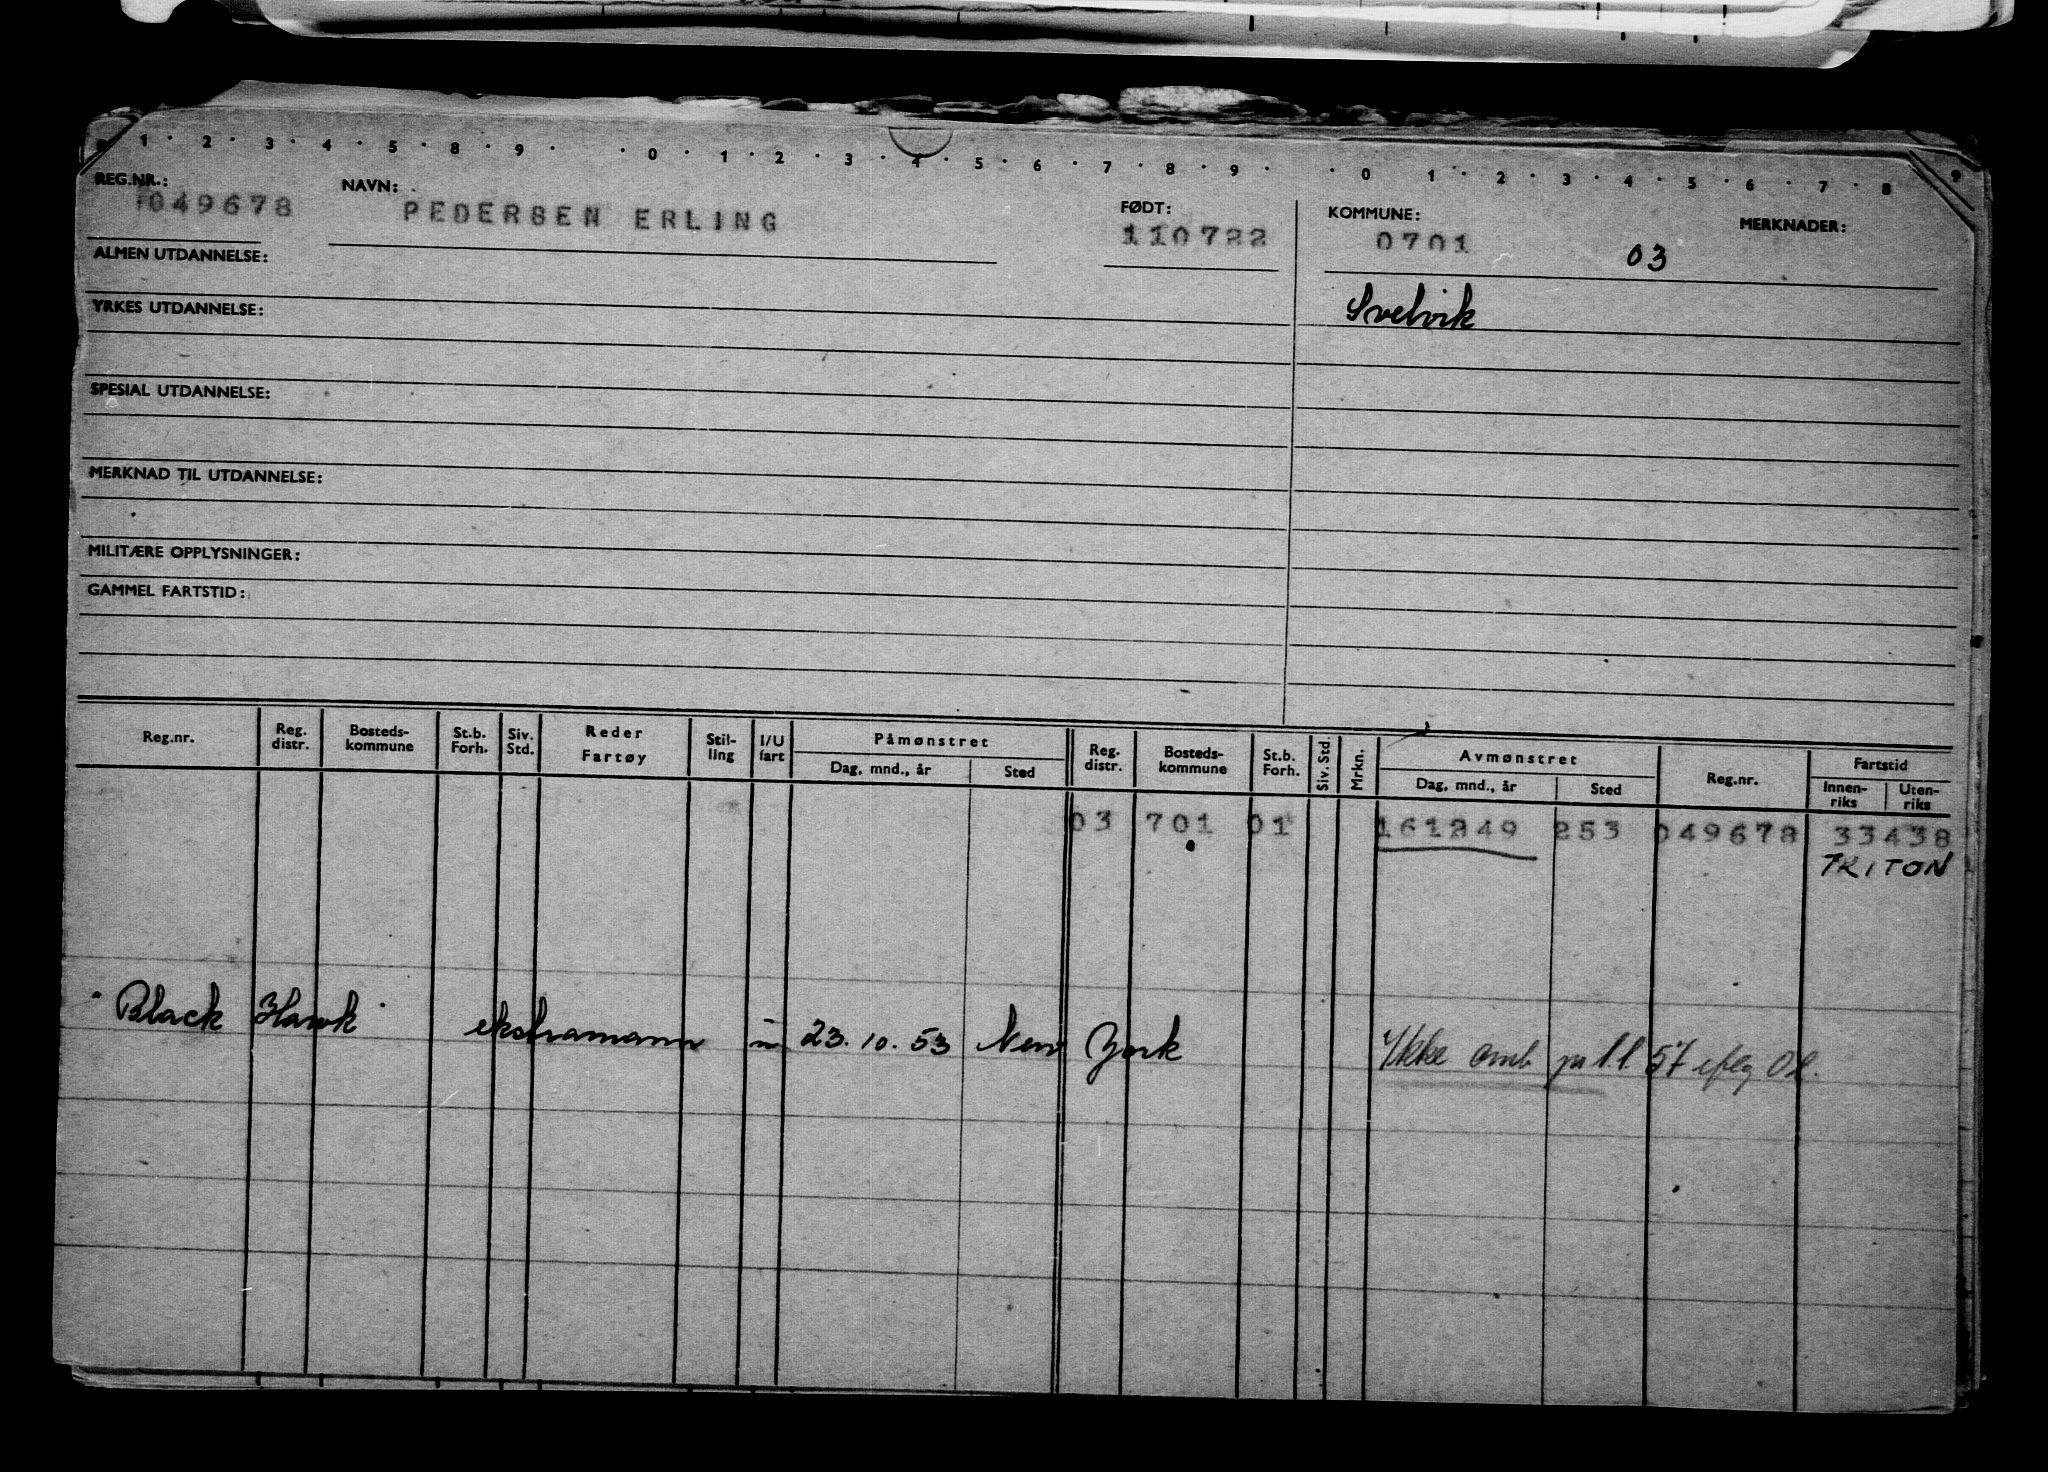 0 1 2 3 4 5 8 9 0 1 2 3 4 5 6 7 8 9 0 1 2 3 4 5 6 7 8 9
REG.NR.: NAVN: FØDT: KOMMUNE: MERKNADER:
049678 PEDERSEN ERLING 110722 0701 03
ALMEN UTDANNELSE:
YRKES UTDANNELSE: Svelvik
SPESIAL UTDANNELSE:
MERKNAD TIL UTDANNELSE:
MILITÆRE OPPLYSNINGER:
GAMMEL FARTSTID:
Reg.nr. Reg. distr. Bosteds-kommune St.b. Forh. Siv. Std. Reder Fartøy Stil-ling I/U fart Påmønstret Dag, mnd., år Sted Reg. distr. Bosteds-kommune St.b. Forh. Siv. Std. Mrkn. Avmønstret Dag, mnd., år Sted Reg.nr. Fartstid Innen-riks Uten-riks
03 701 01 161249 253 049678 33438
TRITON
"Black Hawk" ekstramann u 23.10.53 New York Ikke omb pr 1.1.57 iflg